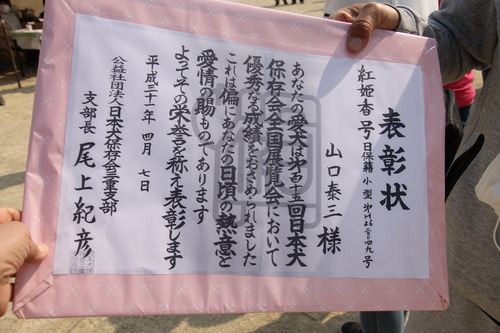 表彰状
紅姫香号 日保籍 小型
山口泰三様
あなたの愛犬は第百十五回日本犬
保存会全国展覧会において
優秀なる成績をおさめられました
これは偏にあなたの日頃の熱意と
愛情の賜ものであります
よってその栄誉を称え表彰します
平成三十一年 四月 七日
公益社団法人 日本犬保存会三重支部
支部長 尾上紀彦